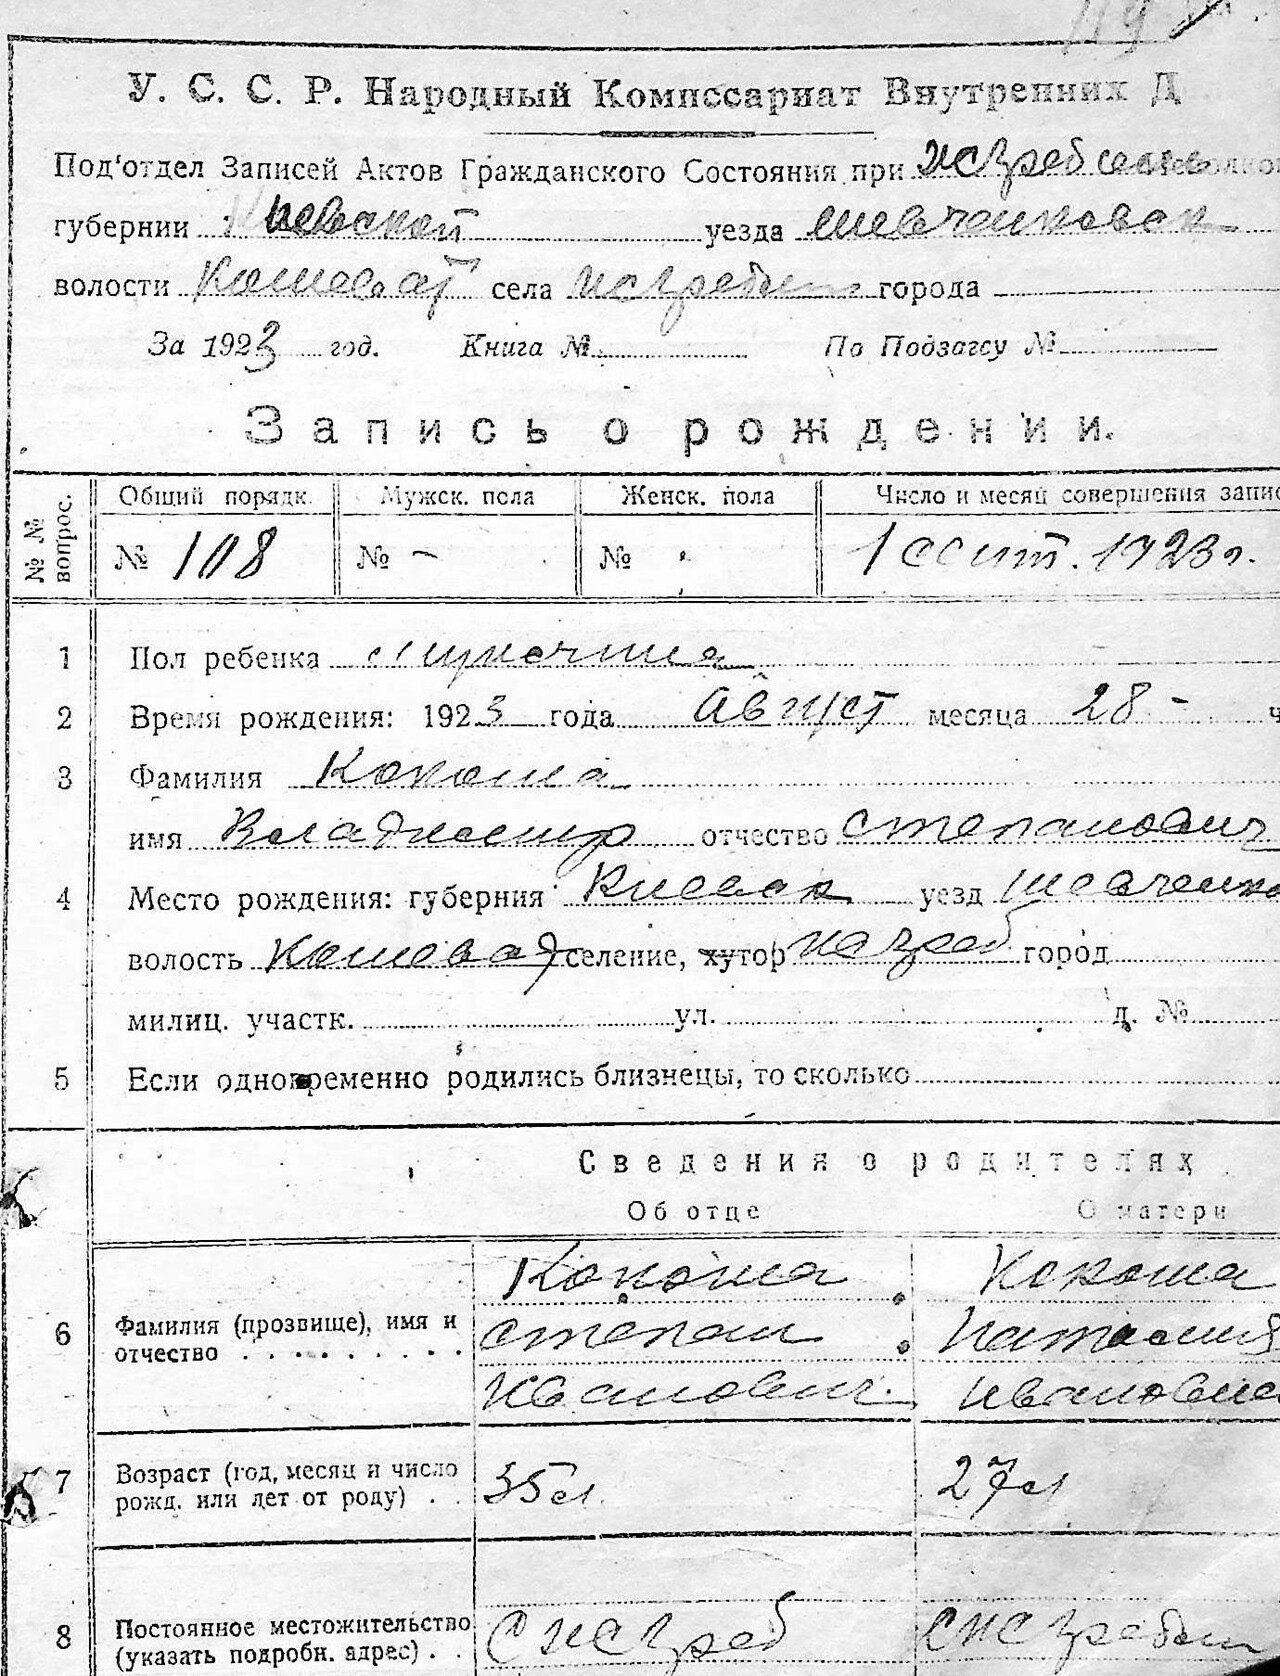 У. С. С. Р. Народный Комиссариат Внутренних Д
Под'отдел Записей Актов Гражданского Состояния при
губернии Киевской уезда Шевченковск
волости Кошеват села Истребы города
За 1923 год. Книга № По Подзагсу №
Запись о рождении.
№ № вопрос. Общий порядк. Мужск. пола Женск. пола Число и месяц совершения запис
№ 108 № - № 1 сент. 1923 г.
1 Пол ребенка мужчина
2 Время рождения: 1923 года Август месяца 28 - ч
3 Фамилия Кокоша
имя Владимир отчество Степанович
4 Место рождения: губерния Киевск уезд Шевченко
волость Кошеват селение, хутор Истреб город
милиц. участк. ул. д. №
5 Если одновременно родились близнецы, то сколько
Сведения о родителях
Об отце О матери
Кокоша Кокоша
6 Фамилия (прозвище), имя и Степан Наталия
отчество Иванович Ивановна
7 Возраст (год, месяц и число 35 л 27 л
рожд. или лет от роду)
8 Постоянное местожительство С Истреб С Истребы
(указать подробн. адрес)